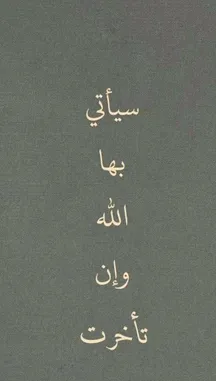 سيأتي
بها
الله
وإن
تأخرت